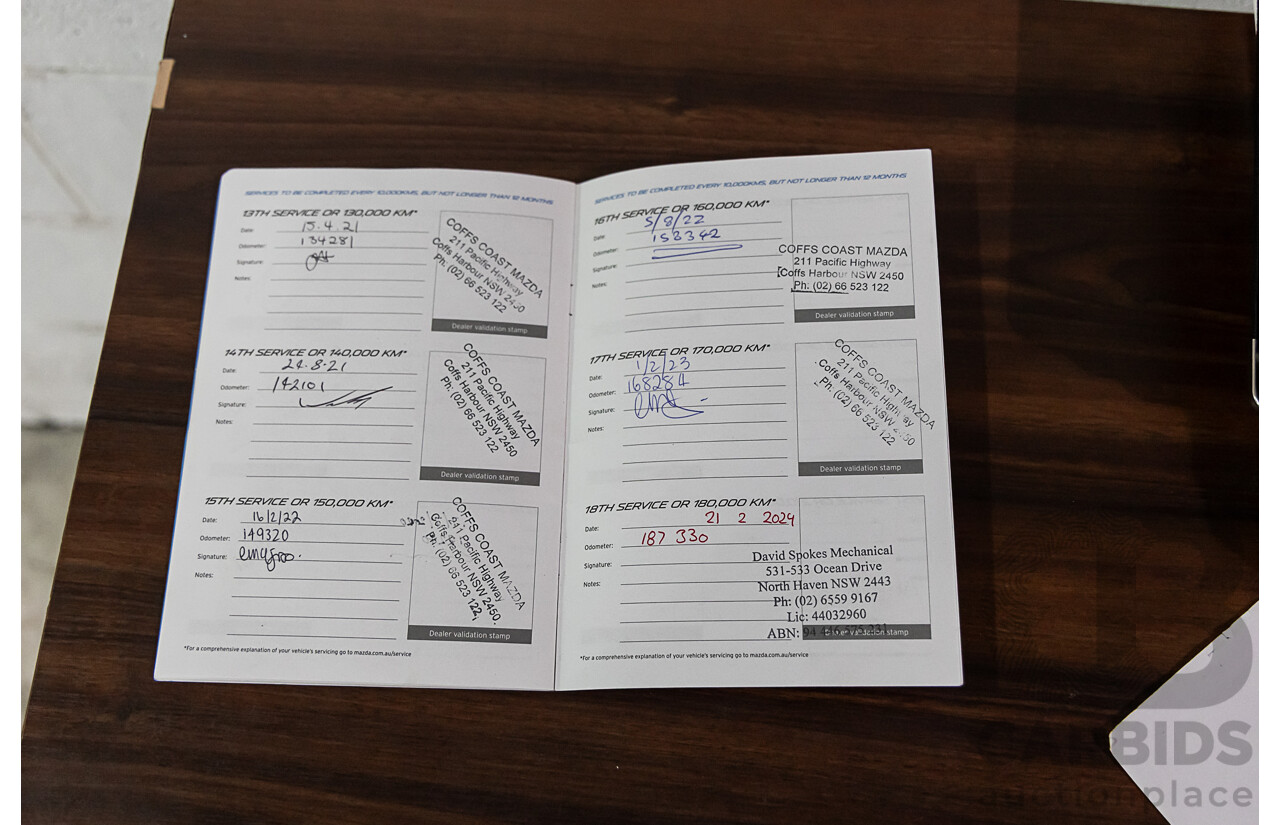 SERVICES TO BE COMPLETED EVERY 10,000KMS, BUT NOT LONGER THAN 12 MONTHS
13TH SERVICE OR 130,000 KM*
Date: 15.4.21
Odometer: 134281
Signature:
Notes:
COFFS COAST MAZDA
211 Pacific Highway
Coffs Harbour NSW 2450
Ph: (02) 66 523 122
Dealer validation stamp
14TH SERVICE OR 140,000 KM*
Date: 24.8.21
Odometer: 142101
Signature:
Notes:
COFFS COAST MAZDA
211 Pacific Highway
Coffs Harbour NSW 2450
Ph: (02) 66 523 122
Dealer validation stamp
15TH SERVICE OR 150,000 KM*
Date: 16/2/22
Odometer: 149320
Signature:
Notes:
COFFS COAST MAZDA
211 Pacific Highway
Coffs Harbour NSW 2450
Ph: (02) 66 523 122
Dealer validation stamp
*For a comprehensive explanation of your vehicle's servicing go to mazda.com.au/service
SERVICES TO BE COMPLETED EVERY 10,000KMS, BUT NOT LONGER THAN 12 MONTHS
16TH SERVICE OR 160,000 KM*
Date: 5/8/22
Odometer: 158342
Signature:
Notes:
COFFS COAST MAZDA
211 Pacific Highway
Coffs Harbour NSW 2450
Ph: (02) 66 523 122
Dealer validation stamp
17TH SERVICE OR 170,000 KM*
Date: 1/2/23
Odometer: 168284
Signature:
Notes:
COFFS COAST MAZDA
211 Pacific Highway
Coffs Harbour NSW 2450
Ph: (02) 66 523 122
Dealer validation stamp
18TH SERVICE OR 180,000 KM*
Date: 21 2 2024
Odometer: 187 330
Signature:
Notes:
David Spokes Mechanical
531-533 Ocean Drive
North Haven NSW 2443
Ph: (02) 6559 9167
Lic: 44032960
ABN:
Dealer validation stamp
*For a comprehensive explanation of your vehicle's servicing go to mazda.com.au/service
CARBIDS
auction place